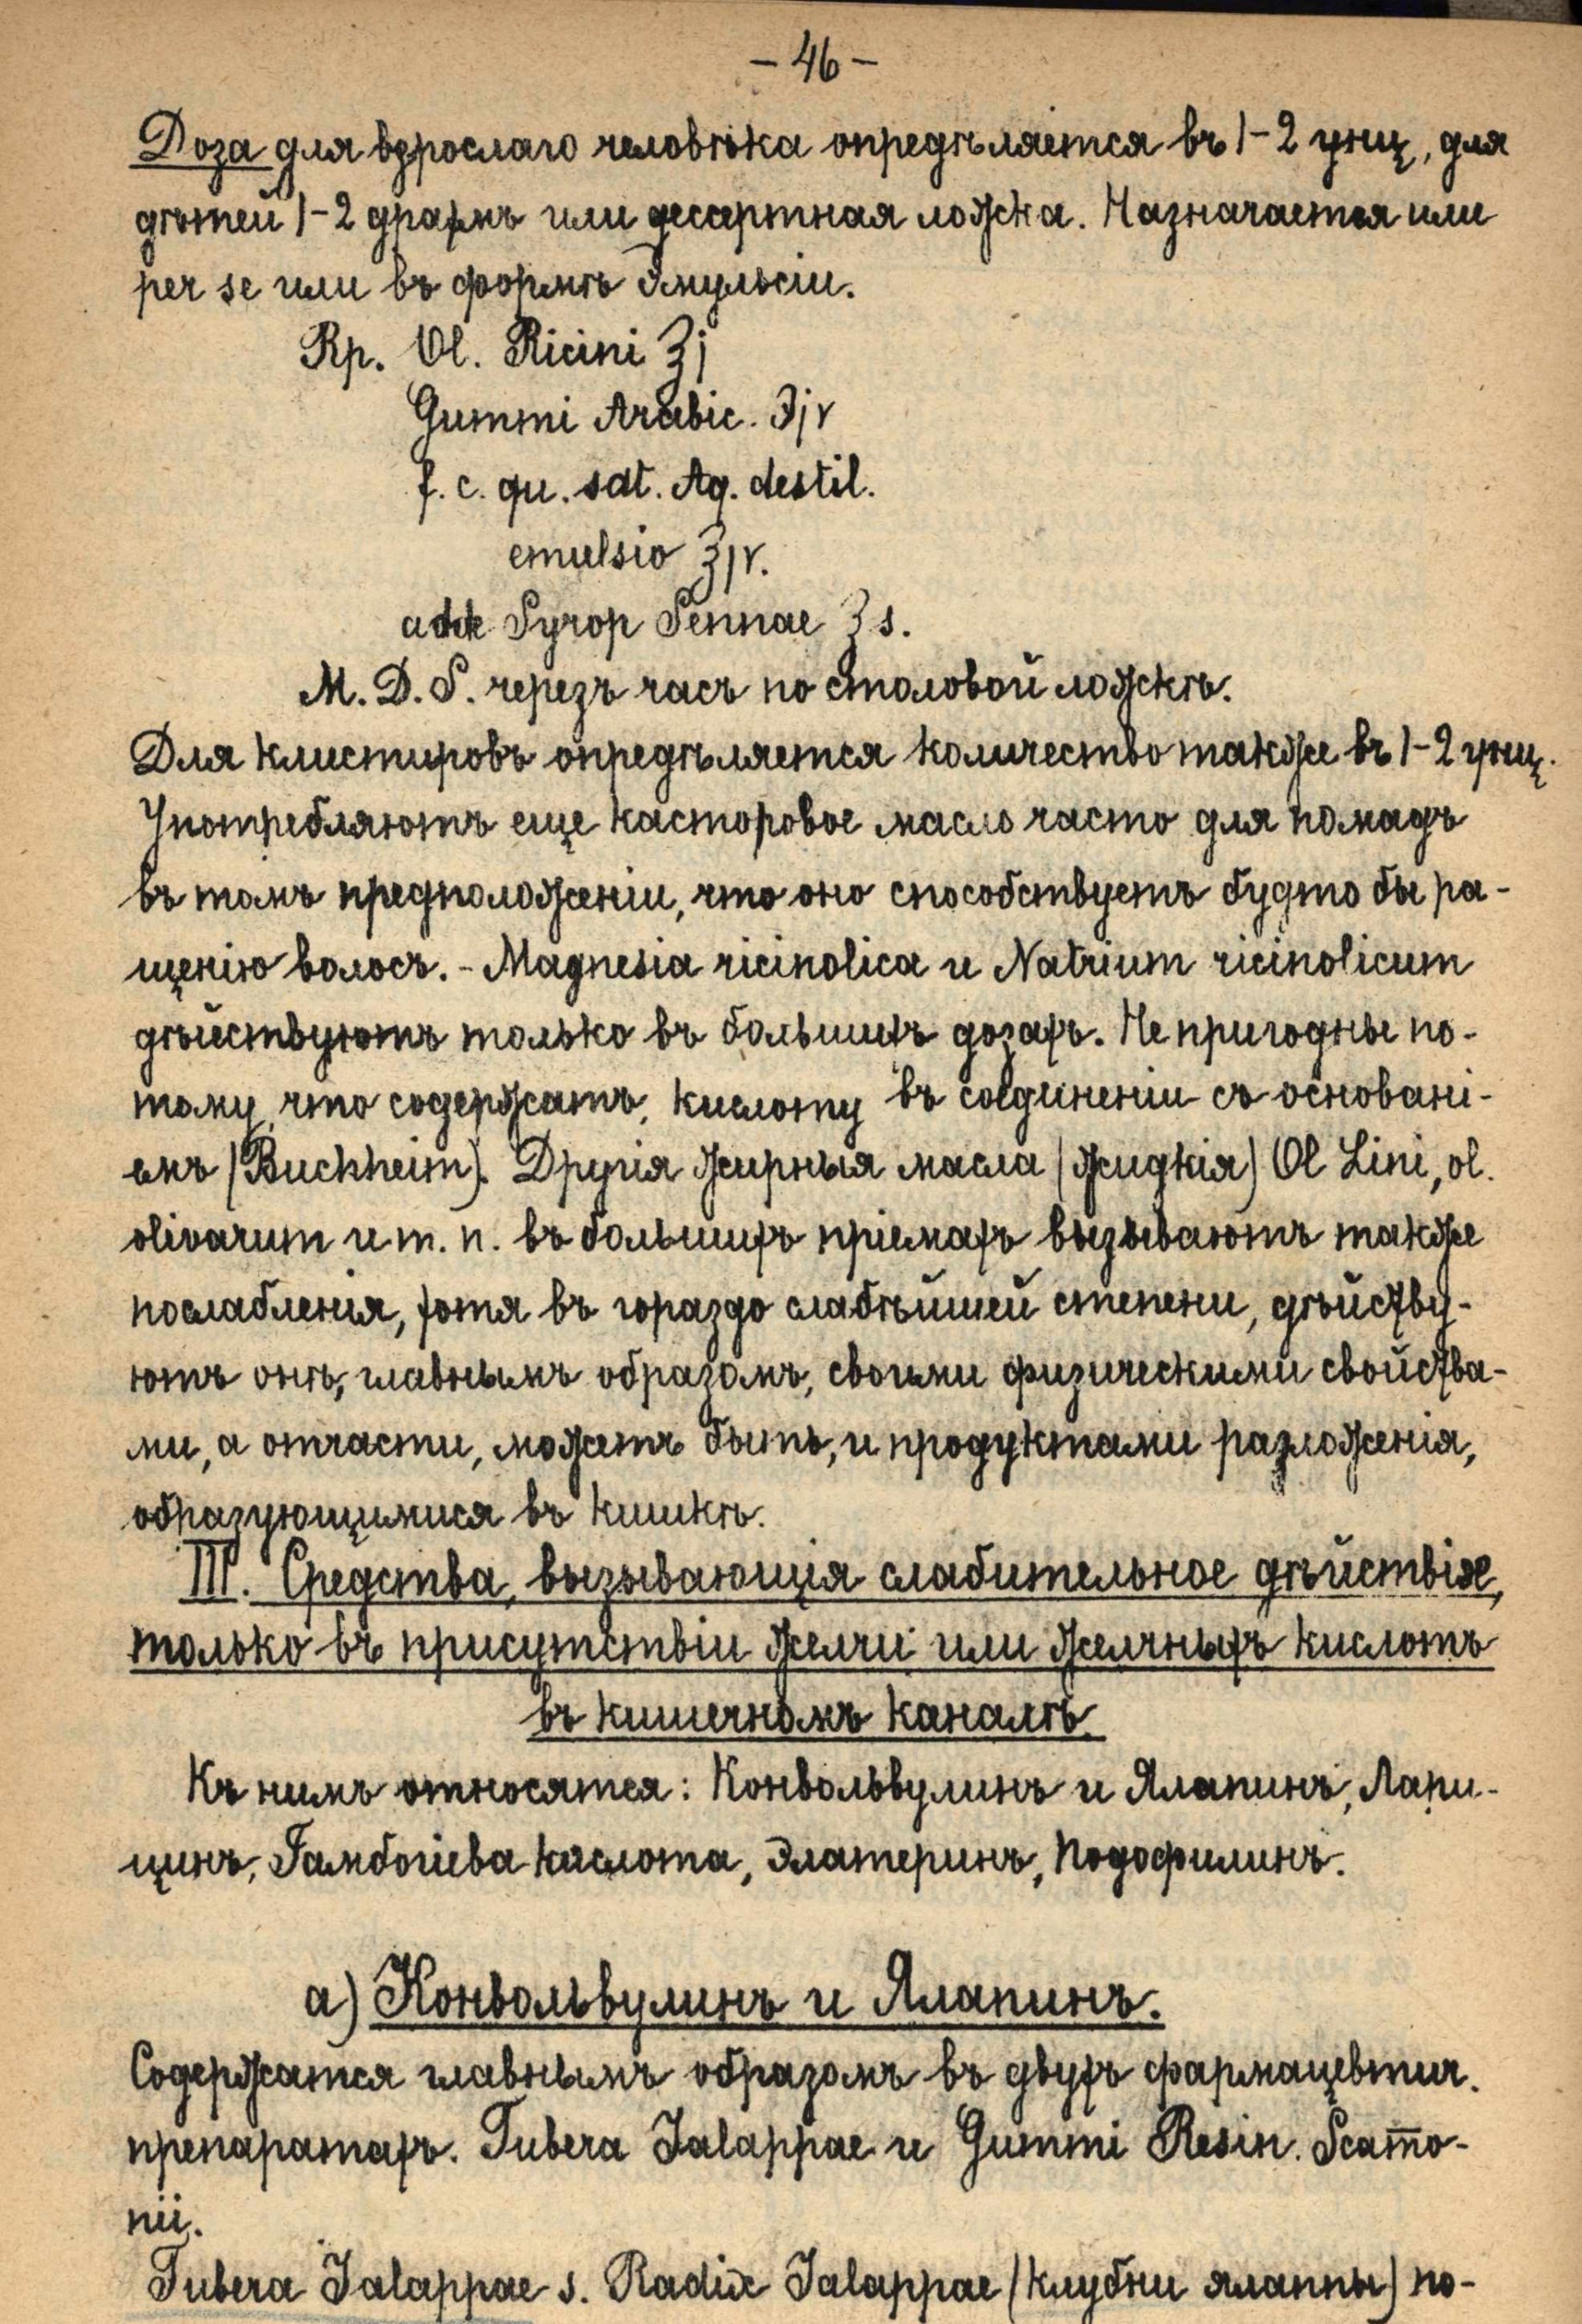 – 46 –
Доза для взрослаго человѣка опредѣляется въ 1–2 унц, для
дѣтей 1–2 драхмъ или дессертная ложка. Назначается или
per se или въ формѣ эмульсіи.
Rp. Ol. Ricini ℥j
Gummi Arabic. ʒjv
f. c. qu. sat. Aq. destil.
emulsio ℥jv.
adde Syrop Sennae ℥s.
M. D. S. черезъ часъ по столовой ложкѣ.
Для клистировъ опредѣляется количество также въ 1–2 унц.
Употребляютъ еще касторовое масло часто для помадъ
въ томъ предположеніи, что оно способствуетъ будто бы ра-
щенію волосъ. – Magnesia ricinolica и Natrium ricinolicum
дѣйствуютъ только въ большихъ дозахъ. Не пригодны по-
тому, что содержатъ, кислоту въ соединеніи съ основані-
емъ (Buchheim). Другія жирныя масла (жидкія) Ol Lini, ol.
olivarum и т. п. въ большихъ пріемахъ вызываютъ также
послабленія, хотя въ гораздо слабѣйшей степени, дѣйству-
ютъ онѣ, главнымъ образомъ, своими физическими свойства-
ми, а отчасти, можетъ быть, и продуктами разложенія,
образующимися въ кишкѣ.
III. Средства, вызывающія слабительное дѣйствіе,
только въ присутствіи желчи или желчныхъ кислотъ
въ кишечномъ каналѣ.
Къ нимъ относятся: Конвольвулинъ и Ялапинъ, Лапи-
цинъ, Гамбогіева кислота, Элатеринъ, Подофилинъ.
а) Конвольвулинъ и Ялапинъ.
Содержатся главнымъ образомъ въ двухъ фармацевтич.
препаратахъ. Tubera Jalappae и Gummi Resin. Scam̅o-
nii.
Tubera Jalappae s. Radix Jalappae (клубни ялаппы) по-